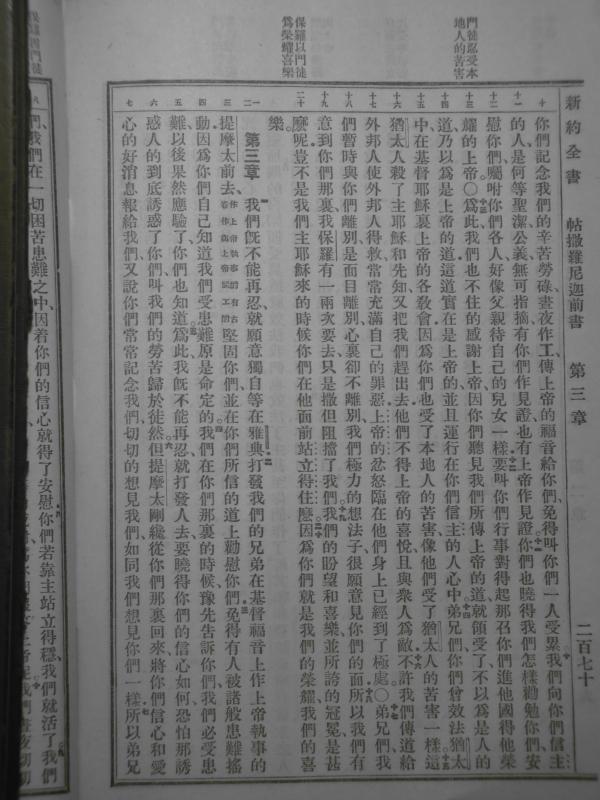 新約全書　帖撒羅尼迦前書　第三章　二百七十
門徒忍受本
地人的苦害
保羅以門徒
爲榮耀喜樂
你們記念我們的辛苦勞碌、晝夜作工、傳上帝的福音給你們、免得叫你們一人受累、我們向你們信主
的人、是何等聖潔公義、無可指摘、有你們作見證、也有上帝作見證、你們也曉得我們怎樣勸勉你們、安
慰你們、囑咐你們各人、好像父親待自己的兒女一樣、要叫你們行事對得起那召你們進他國得他榮
耀的上帝〇爲此我們也不住的感謝上帝、因你們聽見我們所傳上帝的道、就領受了、不以爲是人的
道、乃以爲是上帝的道、這道實在是上帝的、並且運行在你們信主的人心中、弟兄們、你們曾效法猶太
中、在基督耶穌裏上帝的各敎會、因爲你們也受了本地人的苦害、像他們受了猶太人的苦害一樣、這
猶太人殺了主耶穌和先知、又把我們趕出去、他們不得上帝的喜悅、且與衆人爲敵、不許我們傳道給
外邦人、使外邦人得救、常常充滿自己的罪惡、上帝的忿怒臨在他們身上已經到了極處〇弟兄們、我
們暫時與你們離別、是面目離別、心裏卻不離別、我們極力的想法子、很願意見你們的面、所以我們有
意到你們那裏、我保羅有一兩次要去、只是撒但阻擋了我們、我們的盼望和喜樂、並所誇的冠冕、是甚
麽呢、豈不是我們主耶穌來的時候、你們在他面前站立得住麽、因爲你們就是我們的榮耀、我們的喜
樂。
第三章　我們旣不能再忍、就願意獨自等在雅典、打發我們的兄弟在基督福音上作上帝執事的
提摩太前去、堅固你們、並在你們所信的道上勸慰你們、免得有人被諸般患難搖
動、因爲你們自己知道我們受患難原是命定的、我們在你們那裏的時候、豫先告訴你們、我們必受患
難、以後果然應驗了、你們也知道、爲此、我旣不能再忍、就打發人去、要曉得你們的信心如何、恐怕那誘
惑人的到底誘惑了你們、叫我們的勞苦歸於徒然、但提摩太剛纔從你們那裏回來、將你們信心和愛
心的好消息報給我們、又說你們常常記念我們、切切的想見我們、如同我們想見你們一樣、所以弟兄
們、我們在一切困苦患難之中、因着你們的信心就得了安慰、你們若靠主站立得穩、我們就活了、我們